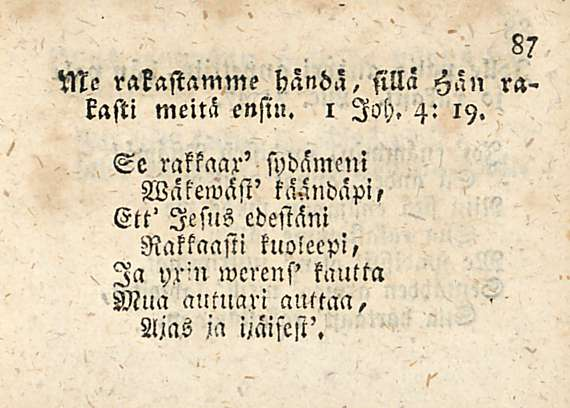 87
Me rakastamme händä, sillä Hän ra-
kasti meitä ensin. 1 Joh. 4: 19.
Se rakkaax' sydämeni
Wäkewäst' käändäpi,
Ett' Jesus edestäni
Rakkaasti kuoleepi,
Ja yxin werens' kautta
Mua autuaxi auttaa,
Ajas ja ijäisest'.